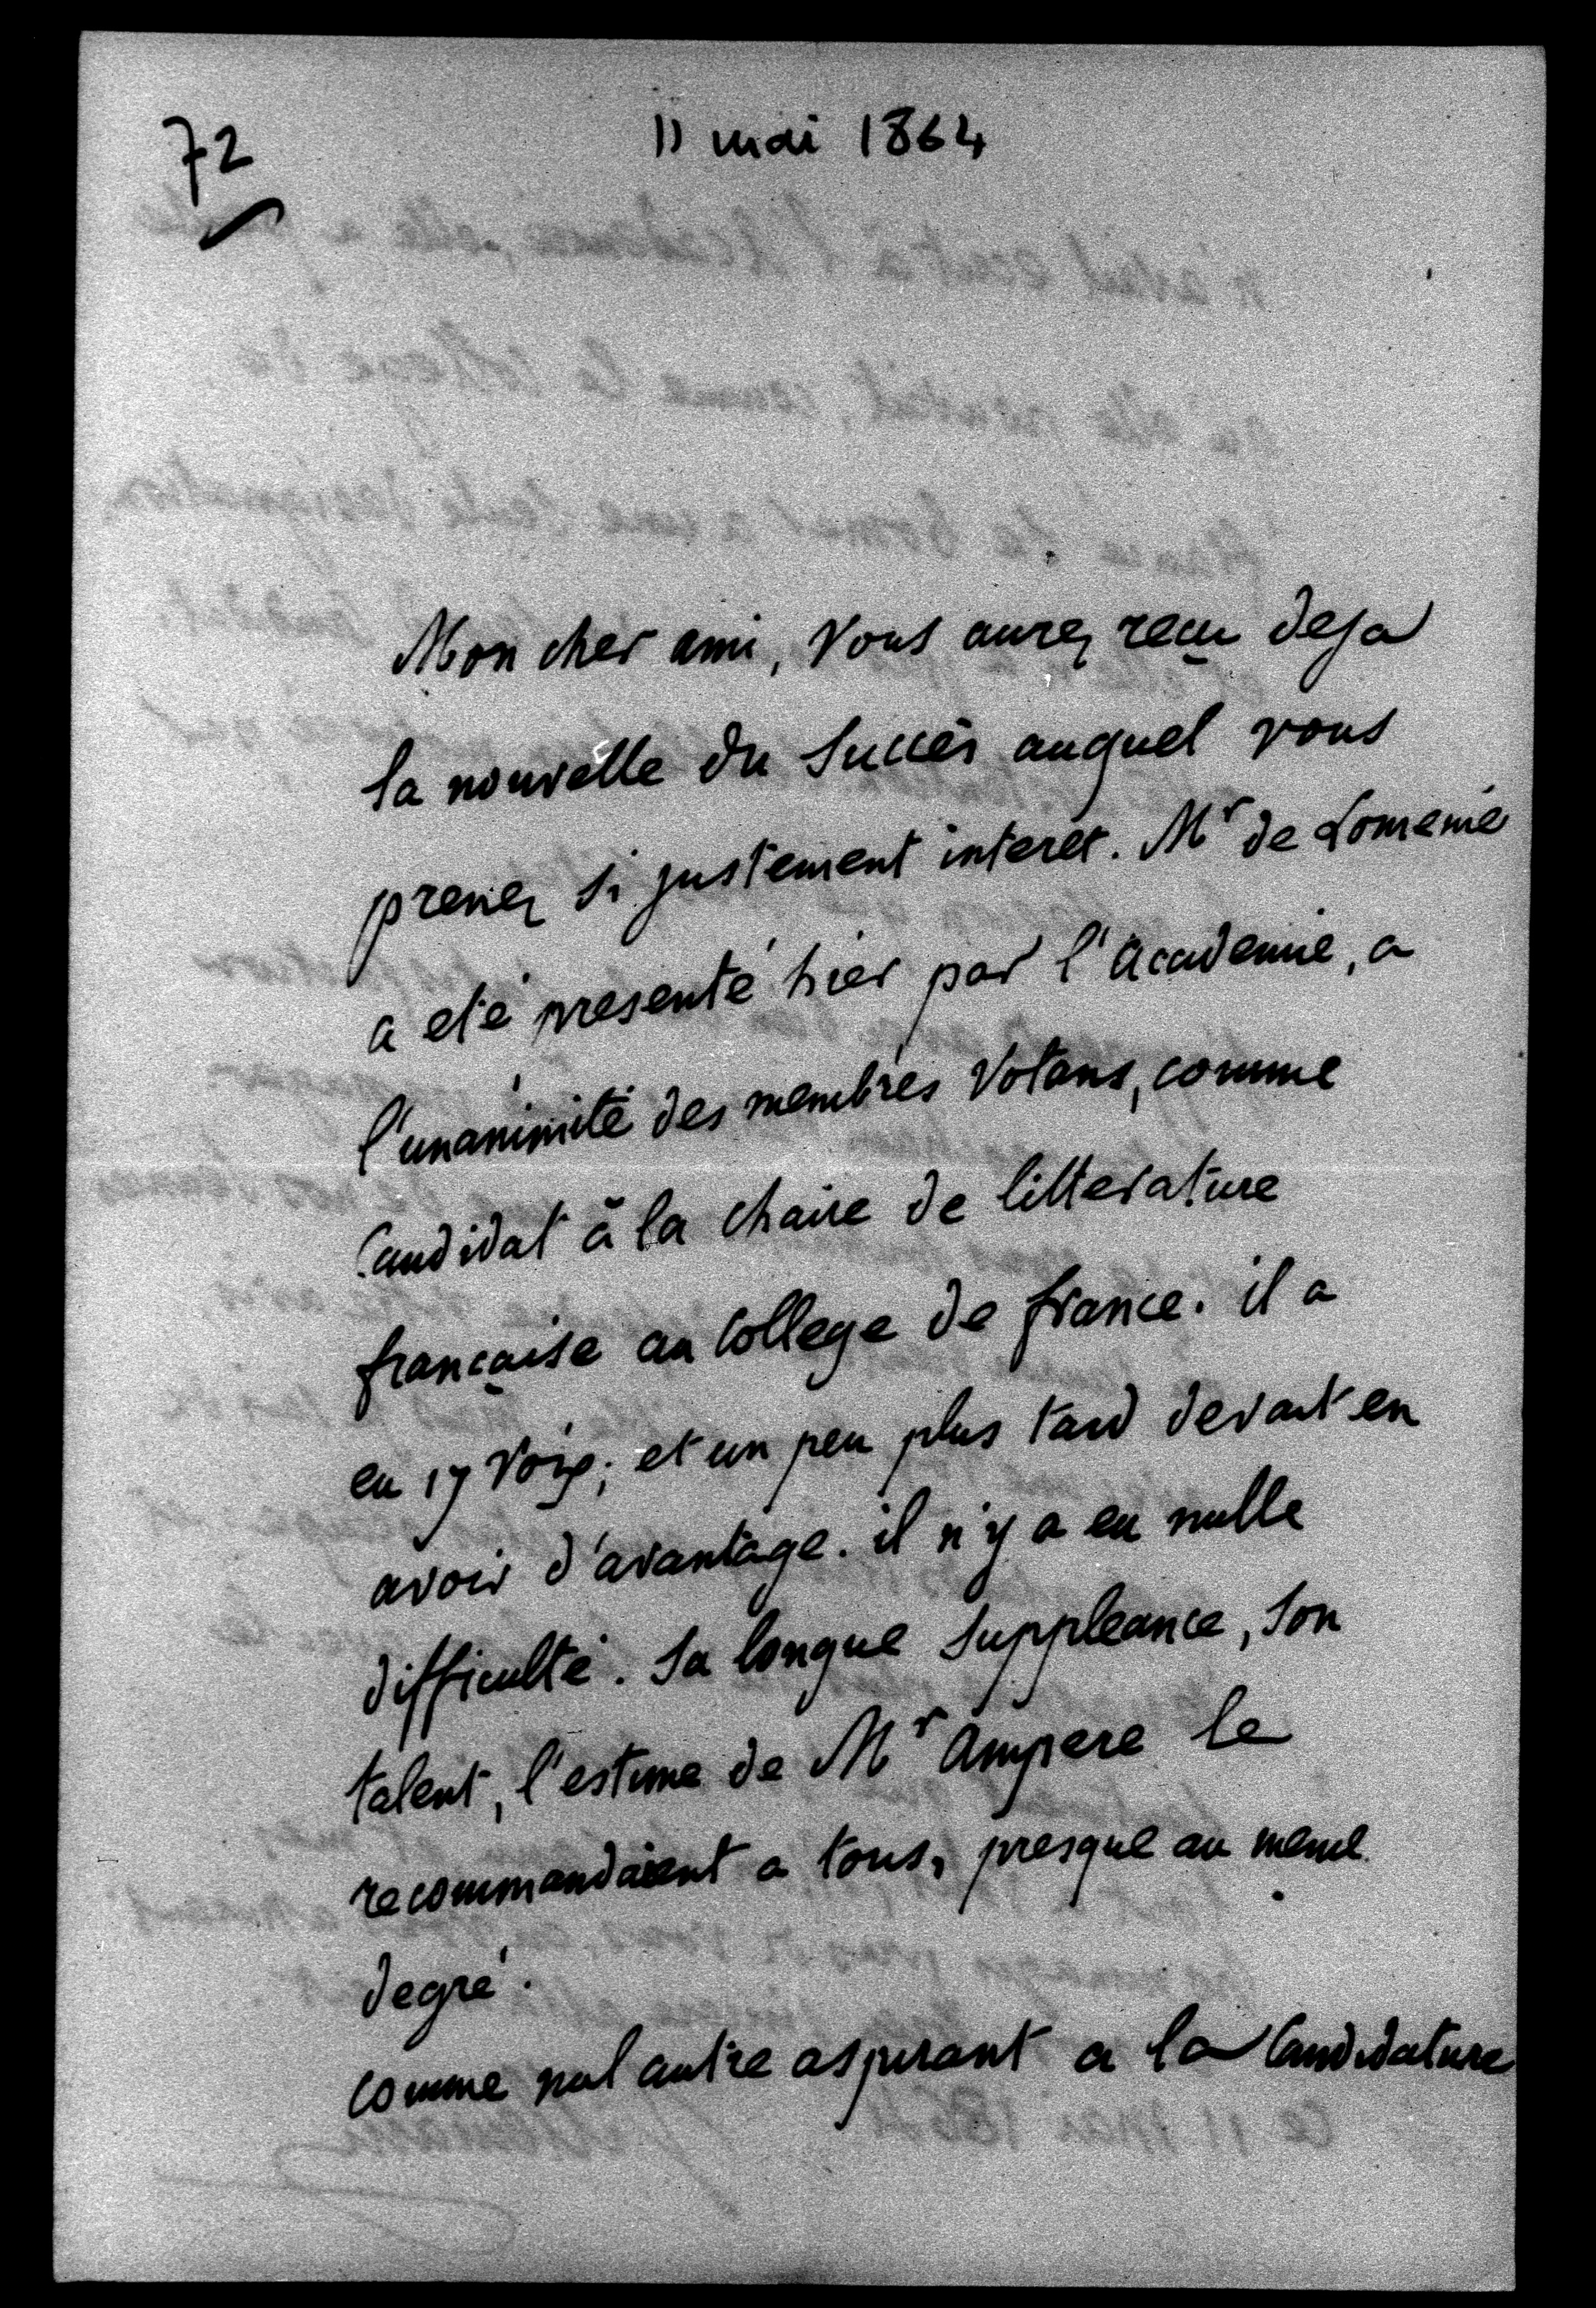 72
11 mai 1864
Mon cher ami, Vous aurez reçu deja
la nouvelle du Succès auquel vous
prenez si justement interet. Mr de Lomenie
a eté presenté hier par l'academie, a
l'unanimité des membres Votans, comme
Candidat à la chaire de litterature
française au College de france. il a
eu 17 Voix; et un peu plus tard devait en
avoir d'avantage. il n'y a eu nulle
difficulté. Sa longue Suppleance, Son
talent, l'estime de Mr Ampere le
recommandaient a tous, presque au meme
degré.
comme nul autre aspirant a la Candidature